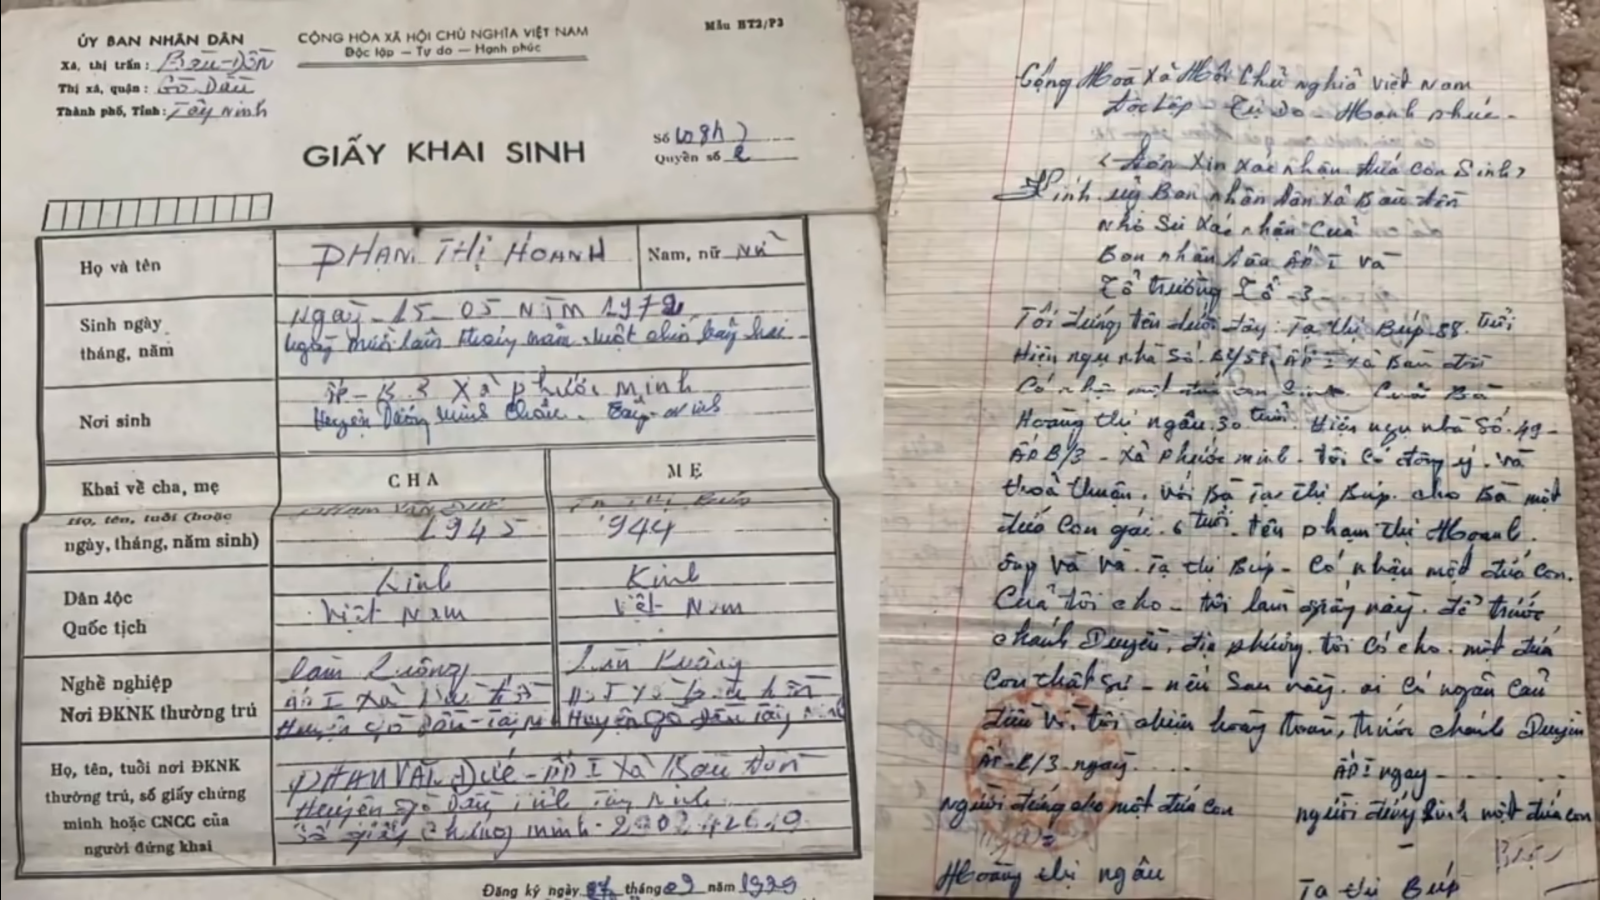 ỦY BAN NHÂN DÂN
Xã, thị trấn: Bàu-Đồn
Thị xã, quận: Gò Dầu
Thành phố, Tỉnh: Tây Ninh
CỘNG HÒA XÃ HỘI CHỦ NGHĨA VIỆT NAM
Độc lập — Tự do — Hạnh phúc
Mẫu BT2/P3
GIẤY KHAI SINH
Số
Quyển số 2
Họ và tên
PHẠM THỊ HOANH
Nam, nữ Nữ
Sinh ngày
tháng, năm
Ngày 15 05 Năm 1972
Ngày mười lăm tháng năm một chín bảy hai
Nơi sinh
ấp - B.3 Xã phước minh
Huyện Dương minh Châu. Tây ninh
Khai về cha, mẹ
CHA
MẸ
Họ, tên, tuổi (hoặc
ngày, tháng, năm sinh)
1945
1944
Dân tộc
Quốc tịch
Kinh
Việt Nam
Kinh
Việt Nam
Nghề nghiệp
Nơi ĐKNK thường trú
làm ruộng
ấp I xã Bàu Đồn
Huyện gò dầu
Làm ruộng
Huyện gò dầu Tây Ninh
Họ, tên, tuổi nơi ĐKNK
thường trú, số giấy chứng
minh hoặc CNCC của
người đứng khai
PHẠM VĂN Đức - ấp I Xã Bàu Đồn
Huyện gò dầu Tỉnh Tây ninh
Số giấy chứng minh
Đăng ký ngày tháng 09 năm
Cộng Hoà Xã Hội Chủ nghĩa Việt Nam
Độc Lập - Tự Do - Hạnh phúc -
Đơn Xin Xác nhận đứa Con Sinh
Kính uỷ Ban nhân dân Xã Bàu đồn
Nhờ Sự Xác nhận Của
Ban nhân dân ẤP I và
Tổ trưởng Tổ -3-
Tôi đứng tên dưới đây: Tạ thị Búp 38. tuổi
Hiện ngụ nhà Số ẤP I Xã Bàu đồn
Có nhận một đứa con Sinh. Của Bà
Hoàng thị ngâu 30 tuổi. Hiện ngụ nhà Số 49-
ẤP B/3 - Xã phước minh - tôi Có đồng ý và
thoả thuận. Với Bà Tạ thị Búp. cho Bà một
đứa Con gái 6 tuổi. tên phạm thị Hoanh.
ông Và Và Tạ thị Búp - Có nhận một đứa Con.
Của tôi cho - tôi làm giấy này. để trước
chánh Quyền, địa phương. tôi Có cho một đứa
Con thật Sự - nếu Sau này. ai Có ngăn Cản
điều Vì tôi chịu hoàng toàn, trước chánh Quyền
ẤP B/3 ngày....
ẤP I ngày....
người đứng cho một đứa con
người đứng Sinh một đứa con
Hoàng thị ngâu
Tạ thị Búp